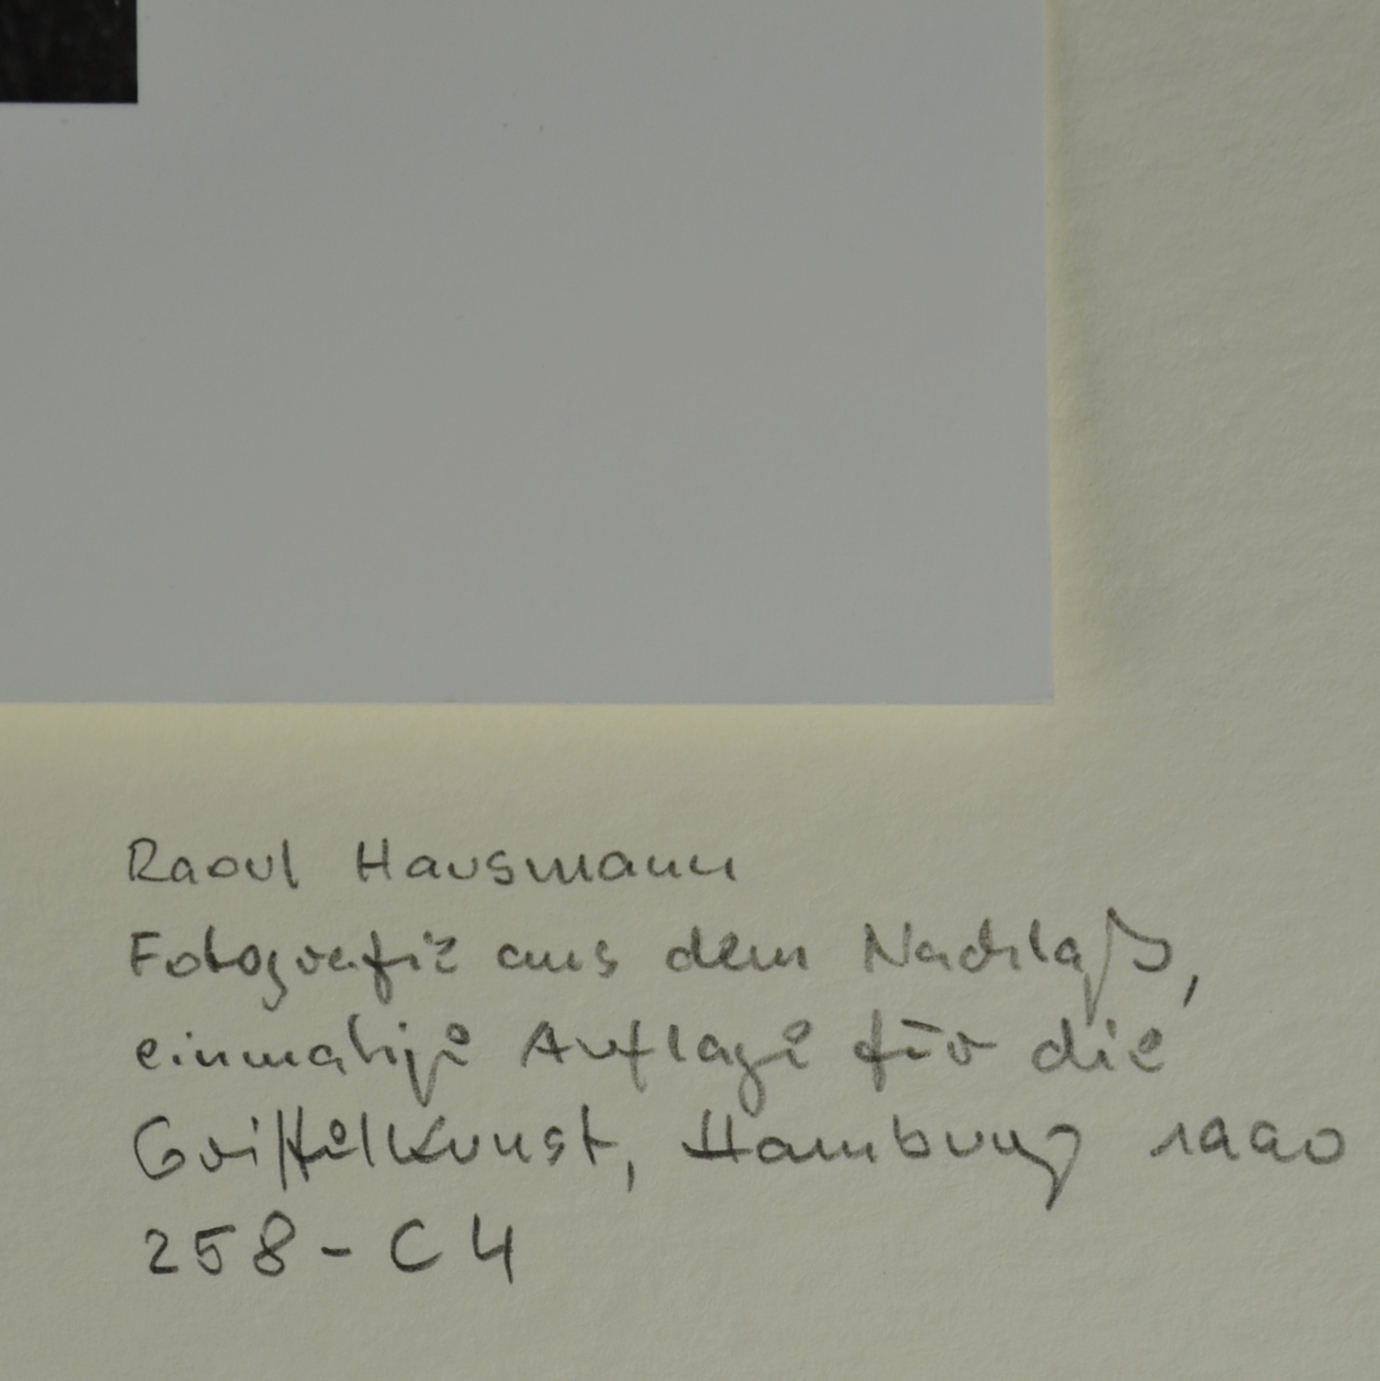 Raoul Hausmann
Fotografie aus dem Nachlaß,
einmalige Auflage für die
Griffelkunst, Hamburg 1990
258-C4